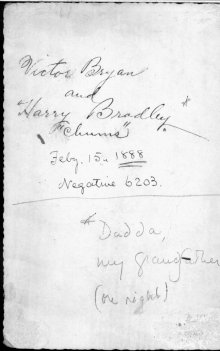 Victor Bryan
and
"Harry Bradley"*
"Chums"
Feby. 15. 1888
Negative 6203.
* Dadda,
my grandfather
(on right)